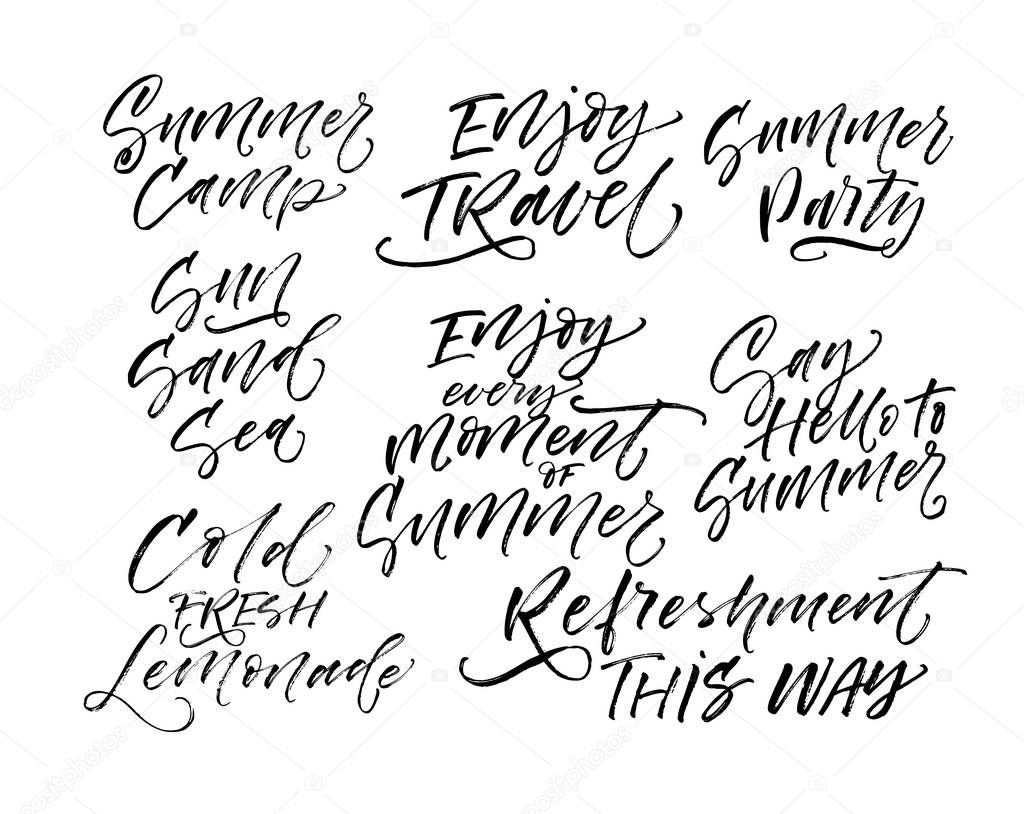 Summer
Camp
Enjoy
TRavel
Summer
Party
Sun
Sand
Sea
Enjoy
every
moment
OF
Summer
Say
Hello to
Summer
Cold
FRESH
Lemonade
Refreshment
THIS WAY
depositphotos